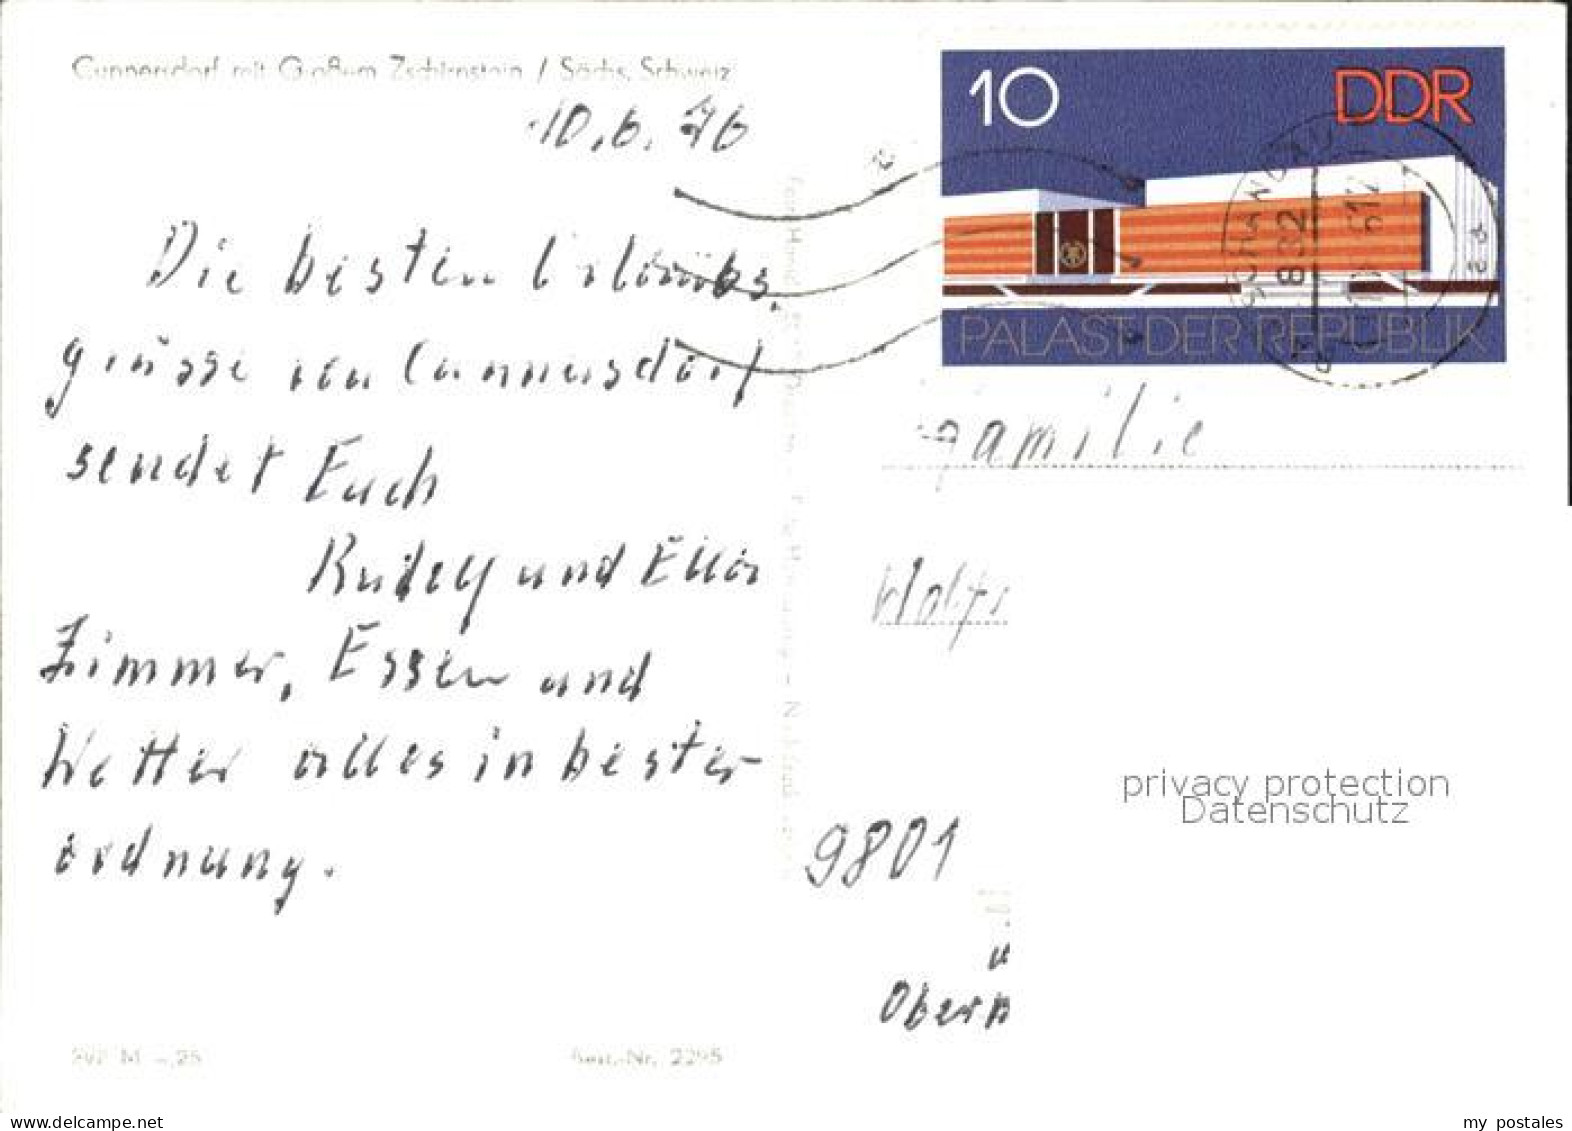 Cunnersdorf mit Großem Zschirnstein / Sächs. Schweiz
10.6.76
Die besten Urlaubs,
grüsse von Cunnersdorf
sendet Euch
Rudolf und Ella
Zimmer, Essen und
Wetter alles in bester
ordnung.
10 DDR
PALAST DER REPUBLIK
SCHANDAU
832
Familie
Wolf
privacy protection
Datenschutz
9801
Ober
M -,25
Best.-Nr. 2295
my postales